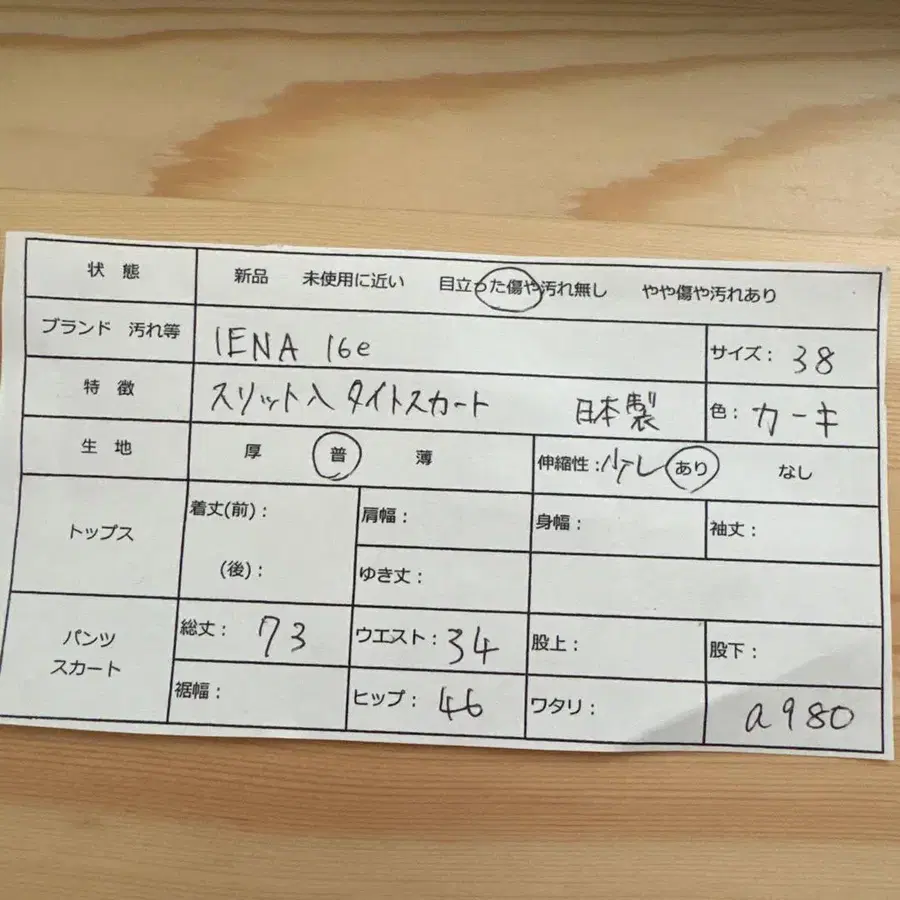 状 態 新品 未使用に近い 目立った傷や汚れ無し やや傷や汚れあり
ブランド 汚れ等 IENA 16e サイズ: 38
特 徴 スリット入タイトスカート 日本製 色: カーキ
生 地 厚 普 薄 伸縮性: 少し あり なし
トップス 着丈(前): 肩幅: 身幅: 袖丈:
(後): ゆき丈:
パンツ スカート 総丈: 73 ウエスト: 34 股上: 股下:
裾幅: ヒップ: 46 ワタリ: a980